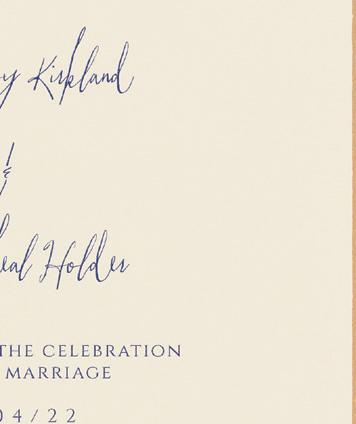 y Kirkland
&
eal Holder
THE CELEBRATION
MARRIAGE
04/22